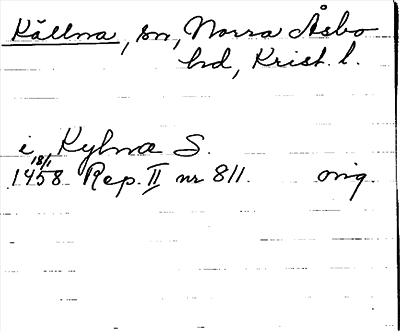 Källna, sn, Norra Åsbo
hd, Krist. l.
i Kylnæ S.
18/1
1458 Rep. II nr 811. orig.